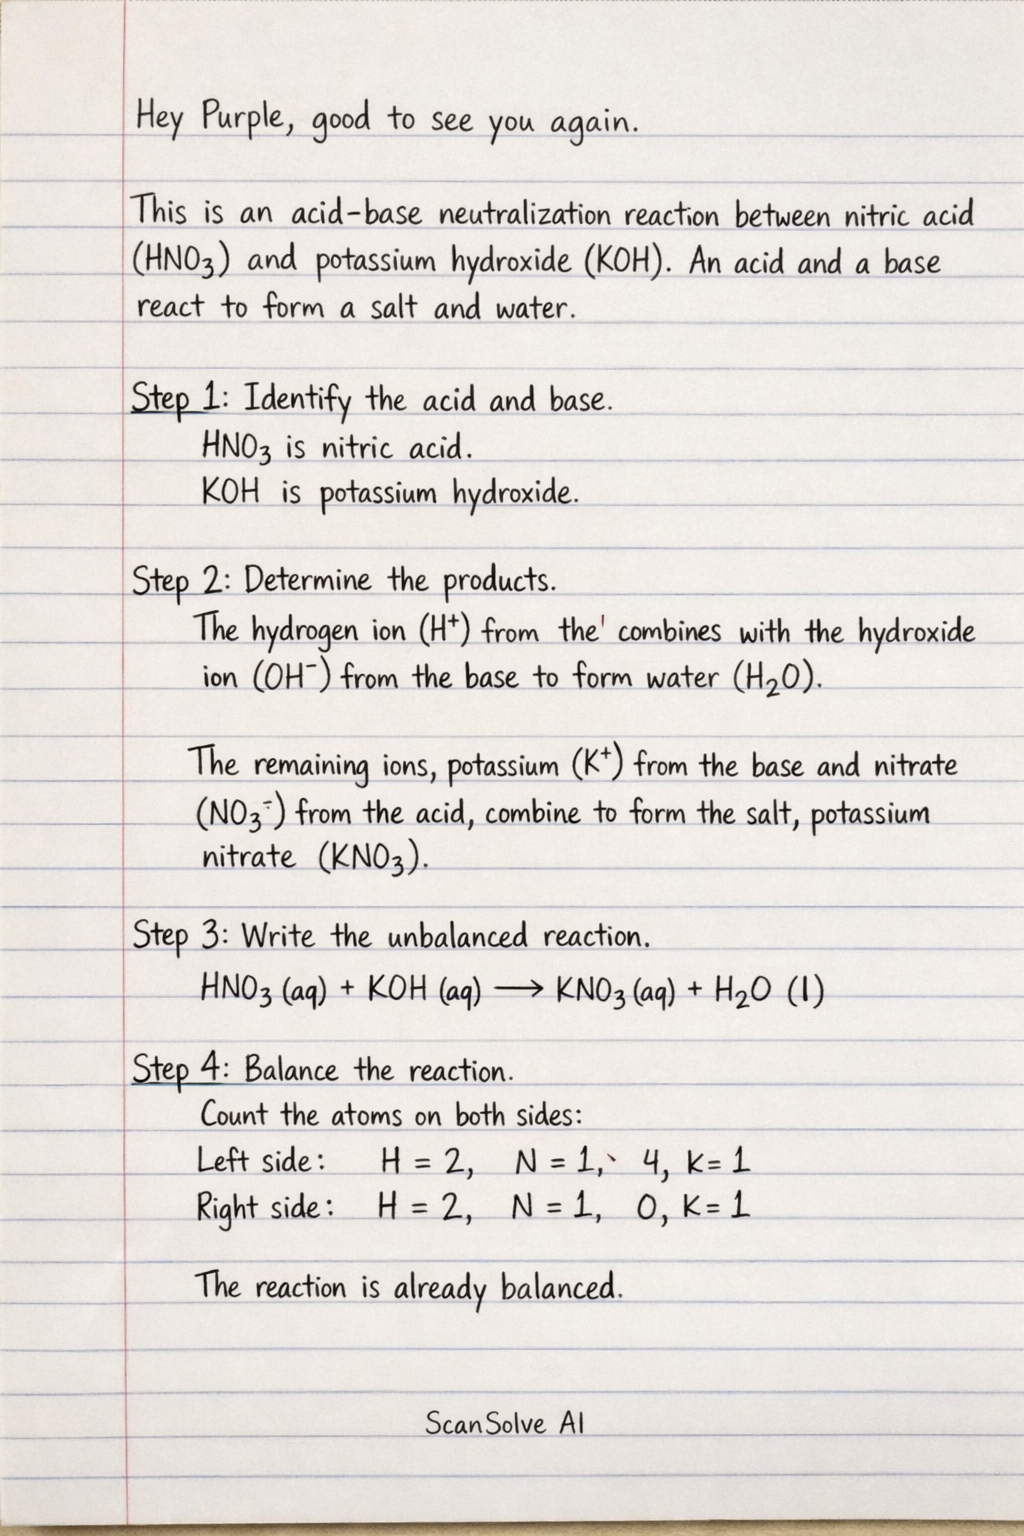 Hey Purple, good to see you again.
This is an acid-base neutralization reaction between nitric acid
(HNO₃) and potassium hydroxide (KOH). An acid and a base
react to form a salt and water.
Step 1: Identify the acid and base.
HNO₃ is nitric acid.
KOH is potassium hydroxide.
Step 2: Determine the products.
The hydrogen ion (H⁺) from the' combines with the hydroxide
ion (OH⁻) from the base to form water (H₂O).
The remaining ions, potassium (K⁺) from the base and nitrate
(NO₃⁻) from the acid, combine to form the salt, potassium
nitrate (KNO₃).
Step 3: Write the unbalanced reaction.
HNO₃ (aq) + KOH (aq) → KNO₃ (aq) + H₂O (l)
Step 4: Balance the reaction.
Count the atoms on both sides:
Left side: H = 2, N = 1,` 4, K = 1
Right side: H = 2, N = 1, O, K = 1
The reaction is already balanced.
ScanSolve AI